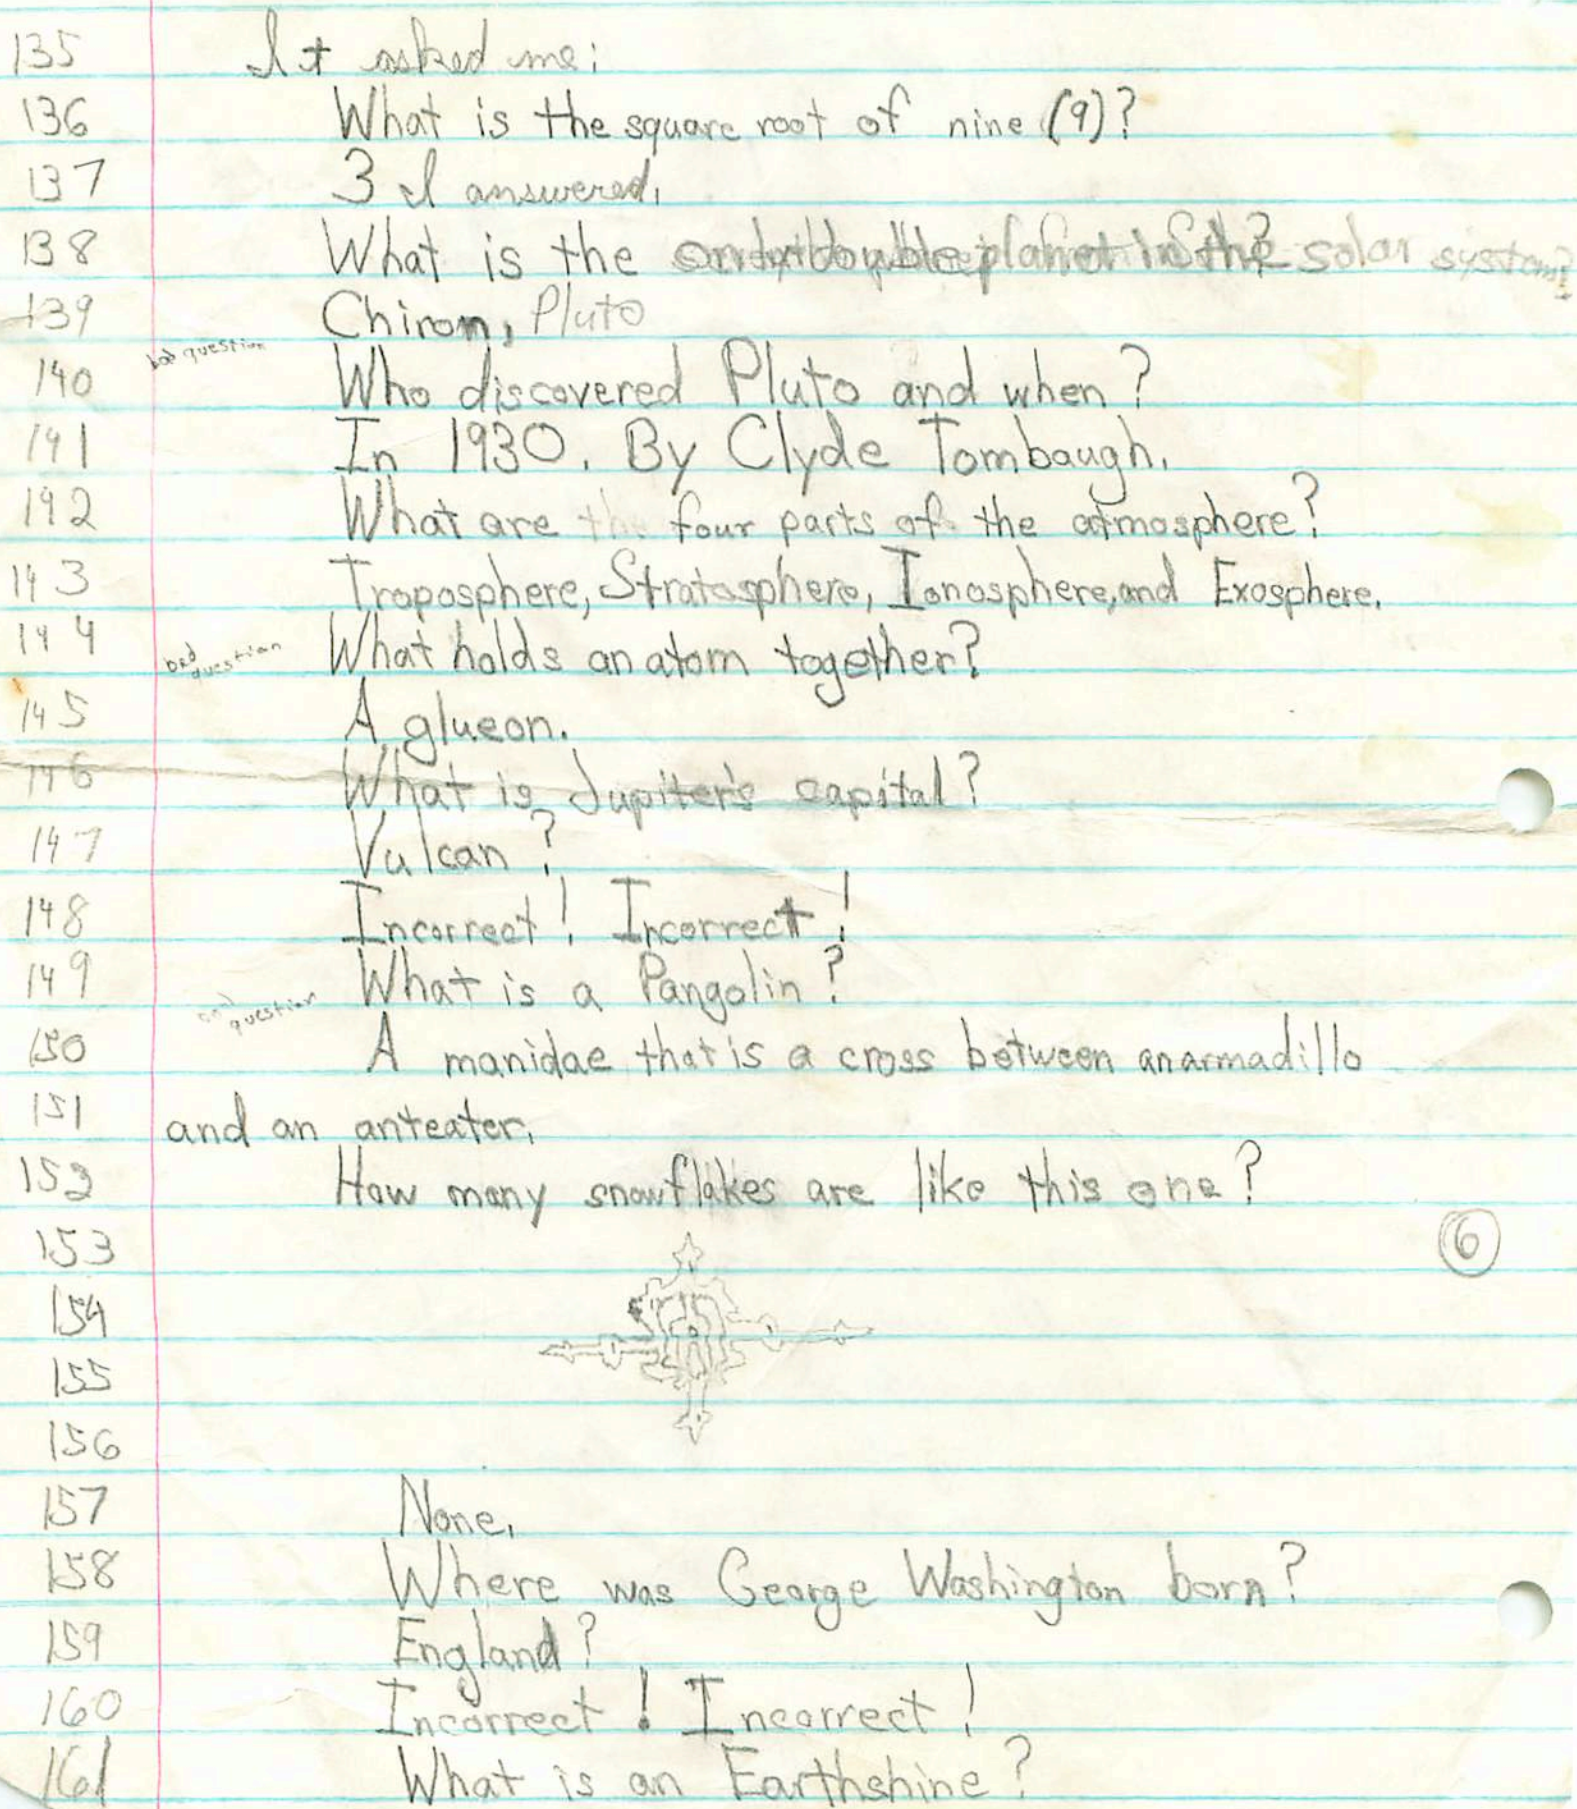 135 It asked me:
136 What is the square root of nine (9)?
137 3 I answered.
138 What is the only double planet in the solar system?
139 Chiron, Pluto
bad question
140 Who discovered Pluto and when?
141 In 1930. By Clyde Tombaugh.
142 What are the four parts of the atmosphere?
143 Troposphere, Stratosphere, Ionosphere, and Exosphere.
bad question
144 What holds an atom together?
145 A glueon.
146 What is Jupiter's capital?
147 Vulcan?
148 Incorrect! Incorrect!
149 What is a Pangolin?
question
150 A manidae that is a cross between an armadillo
151 and an anteater.
152 How many snowflakes are like this one?
153 6
154
155
156
157 None.
158 Where was George Washington born?
159 England?
160 Incorrect! Incorrect!
161 What is an Earthshine?